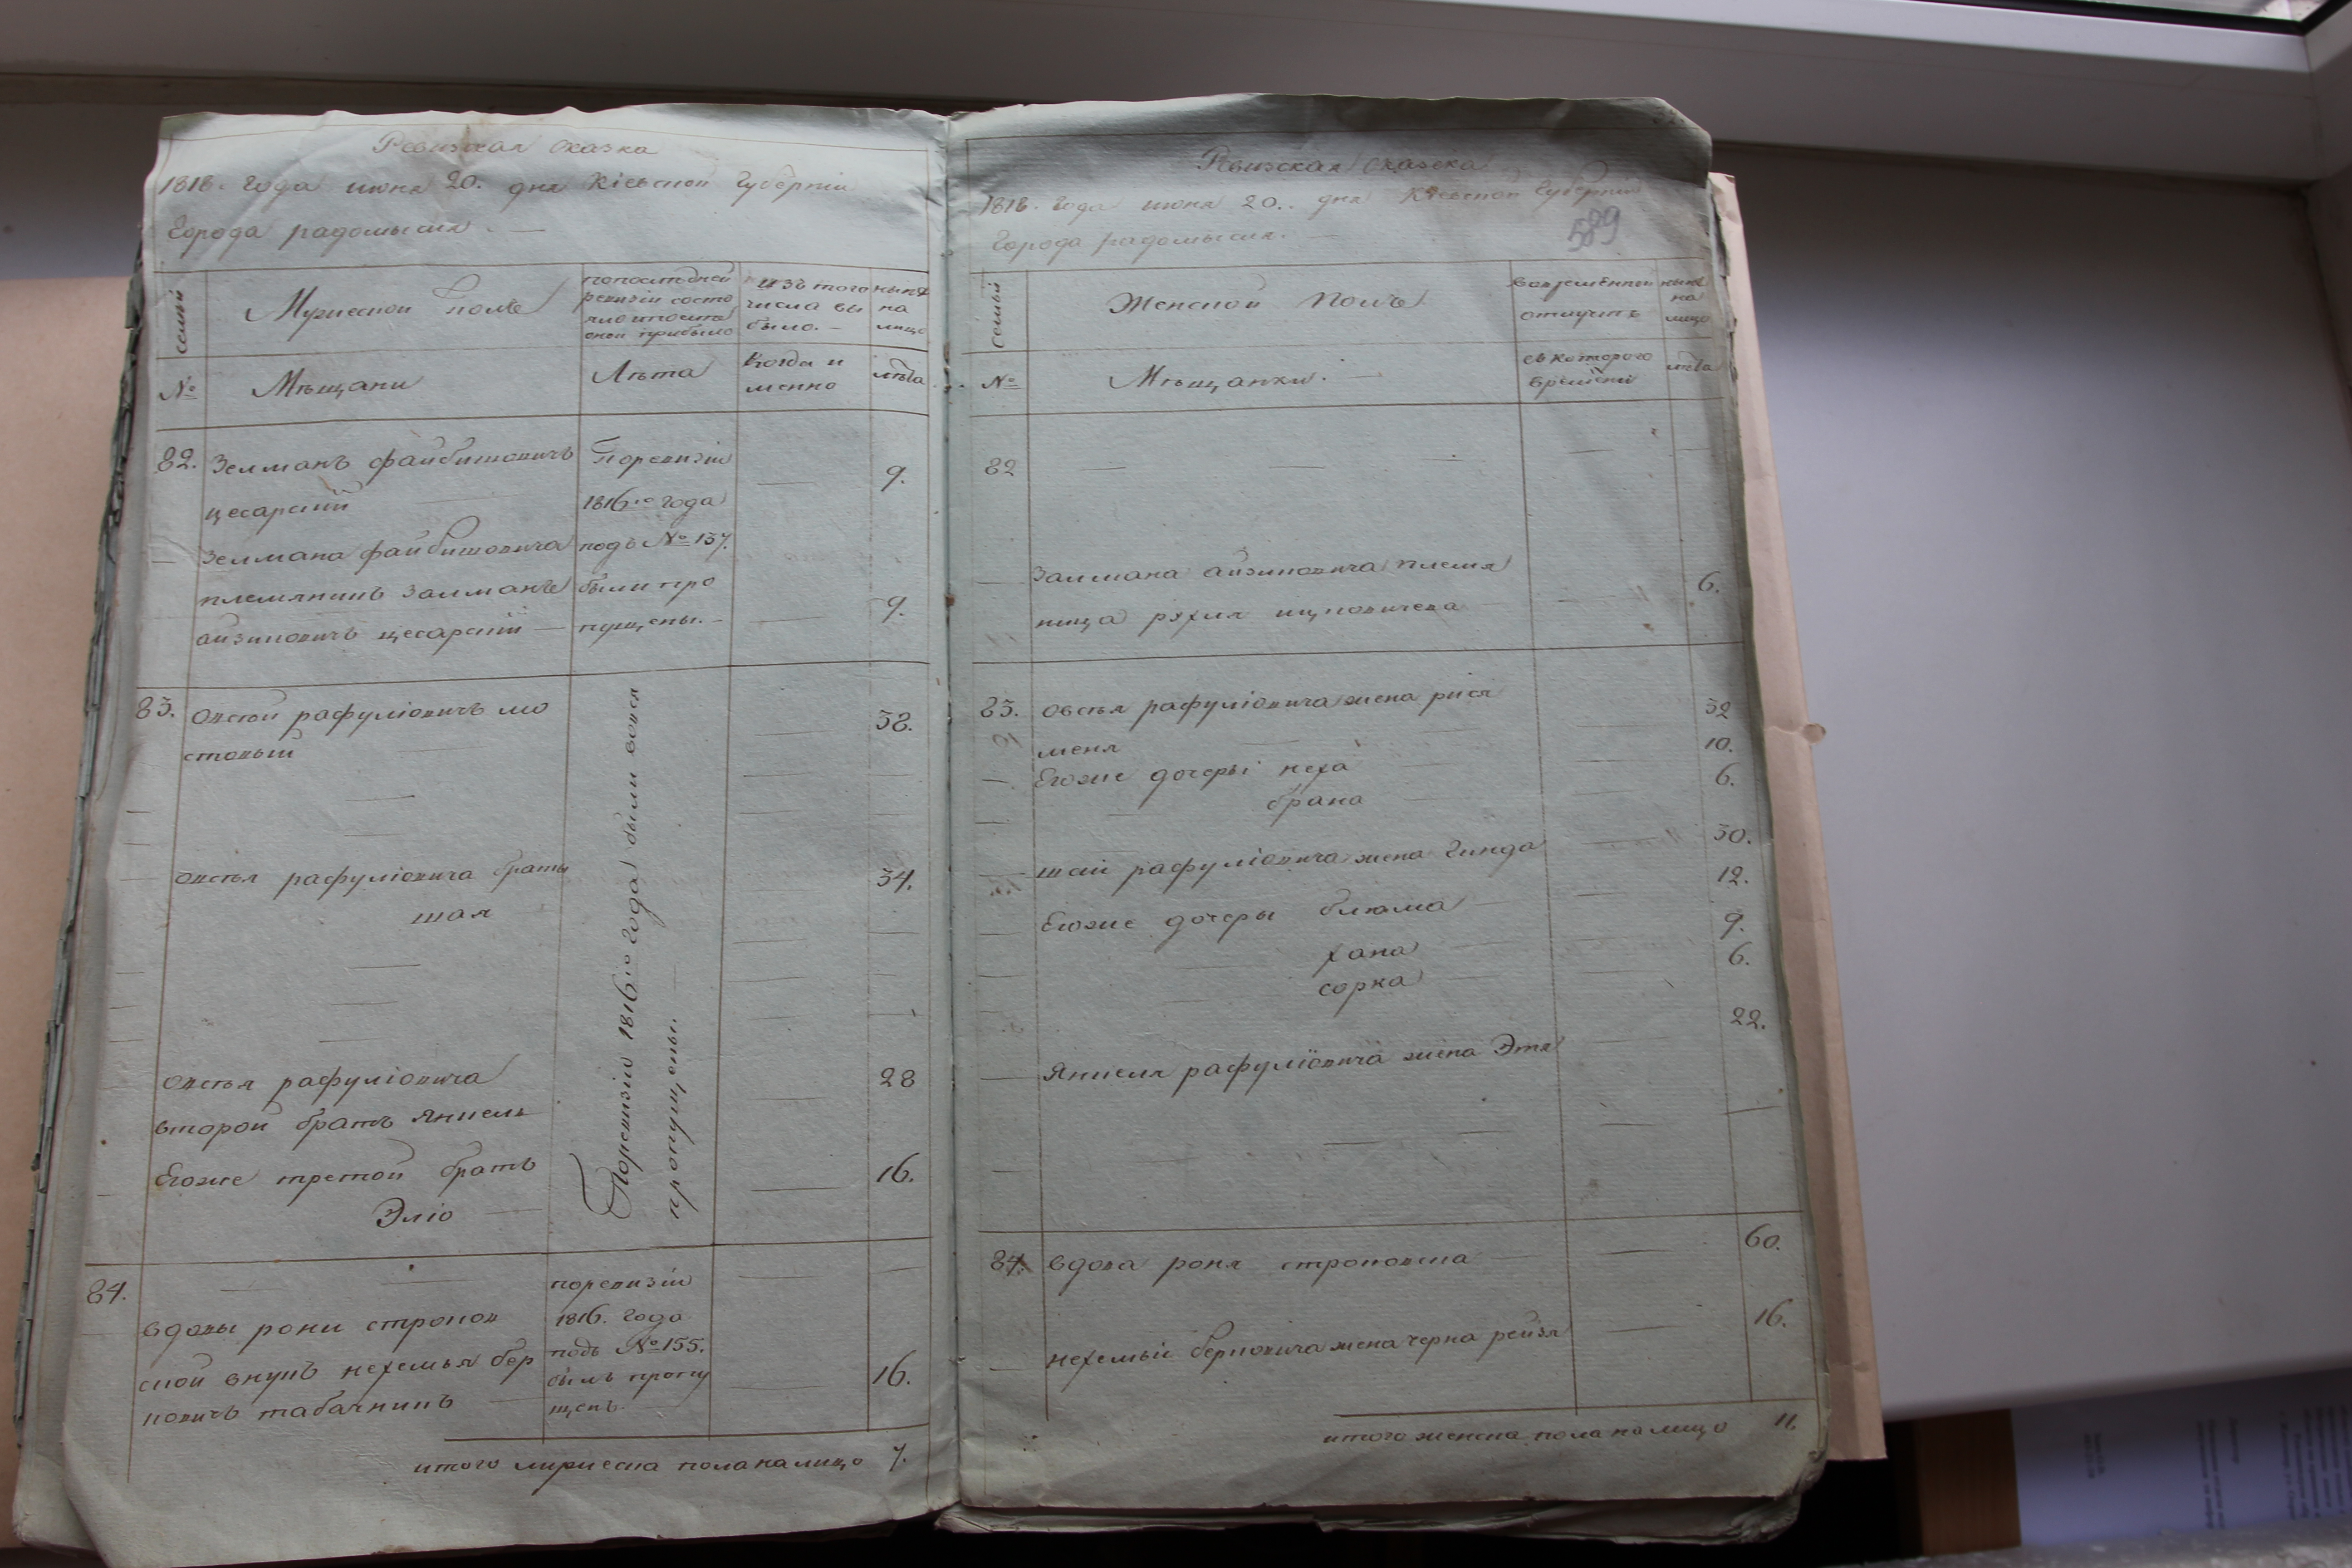 Ревизская сказка
1818. года июня 20. дня Кіевской губерніи
города радомысля. —
семьи
Мужеской полъ
попоследней
ревизіи состо
яло ипосле
оной прибыло
изъ того
числа вы
было. —
ныне
на
лицо
№
Мѣщани
Лѣта
Когда и
менно
лѣта
82.
Зелманъ файбишовичъ
цесарскій
Поревизіи
1816го года
подъ № 157.
были про
пущены. —
9.
Зелмана файбишовича
племянникъ Залманъ
айзиковичъ цесарскій —
9.
83.
Овсѣй рафуліовичъ мо
стовый
38.
Поревизіи 1816го года были вовся
пропущены. —
Овсѣя рафуліовича братъ
шая
34.
Овсѣя рафуліовича
второй братъ Янкель
28
Егоже третой братъ
Эліо
16.
84.
вдовы рони строков
ской внукъ нехемья бер
ковичъ табачникъ
поревизіи
1816. года
подъ № 155.
былъ пропу
щенъ.
16.
итого мужеска пола налицо 7.
Ревизская сказка
1818. года июня 20.. дня Кіевской губерніи
города радомысля. —
589
семьи
Женской полъ
вовременной
отлучке
ныне
на
лицо
№
Мѣщанки. —
съ которого
времени
лѣта
82
Залмана айзиковича племя
ница рухля ицковичева
6.
83.
овсѣя рафуліовича жена рися
меня
32
Егоже дочеры неха
10.
брана
6.
шаи рафуліовича жена Гинда
30.
Егоже дочеры блюма
12.
хана
9.
сорка
6.
Янкеля рафуліовича жена Этя
22.
84.
вдова роня строковска
60.
нехемьи берковича жена черна рейзя
16.
итого женска пола налицо 11.